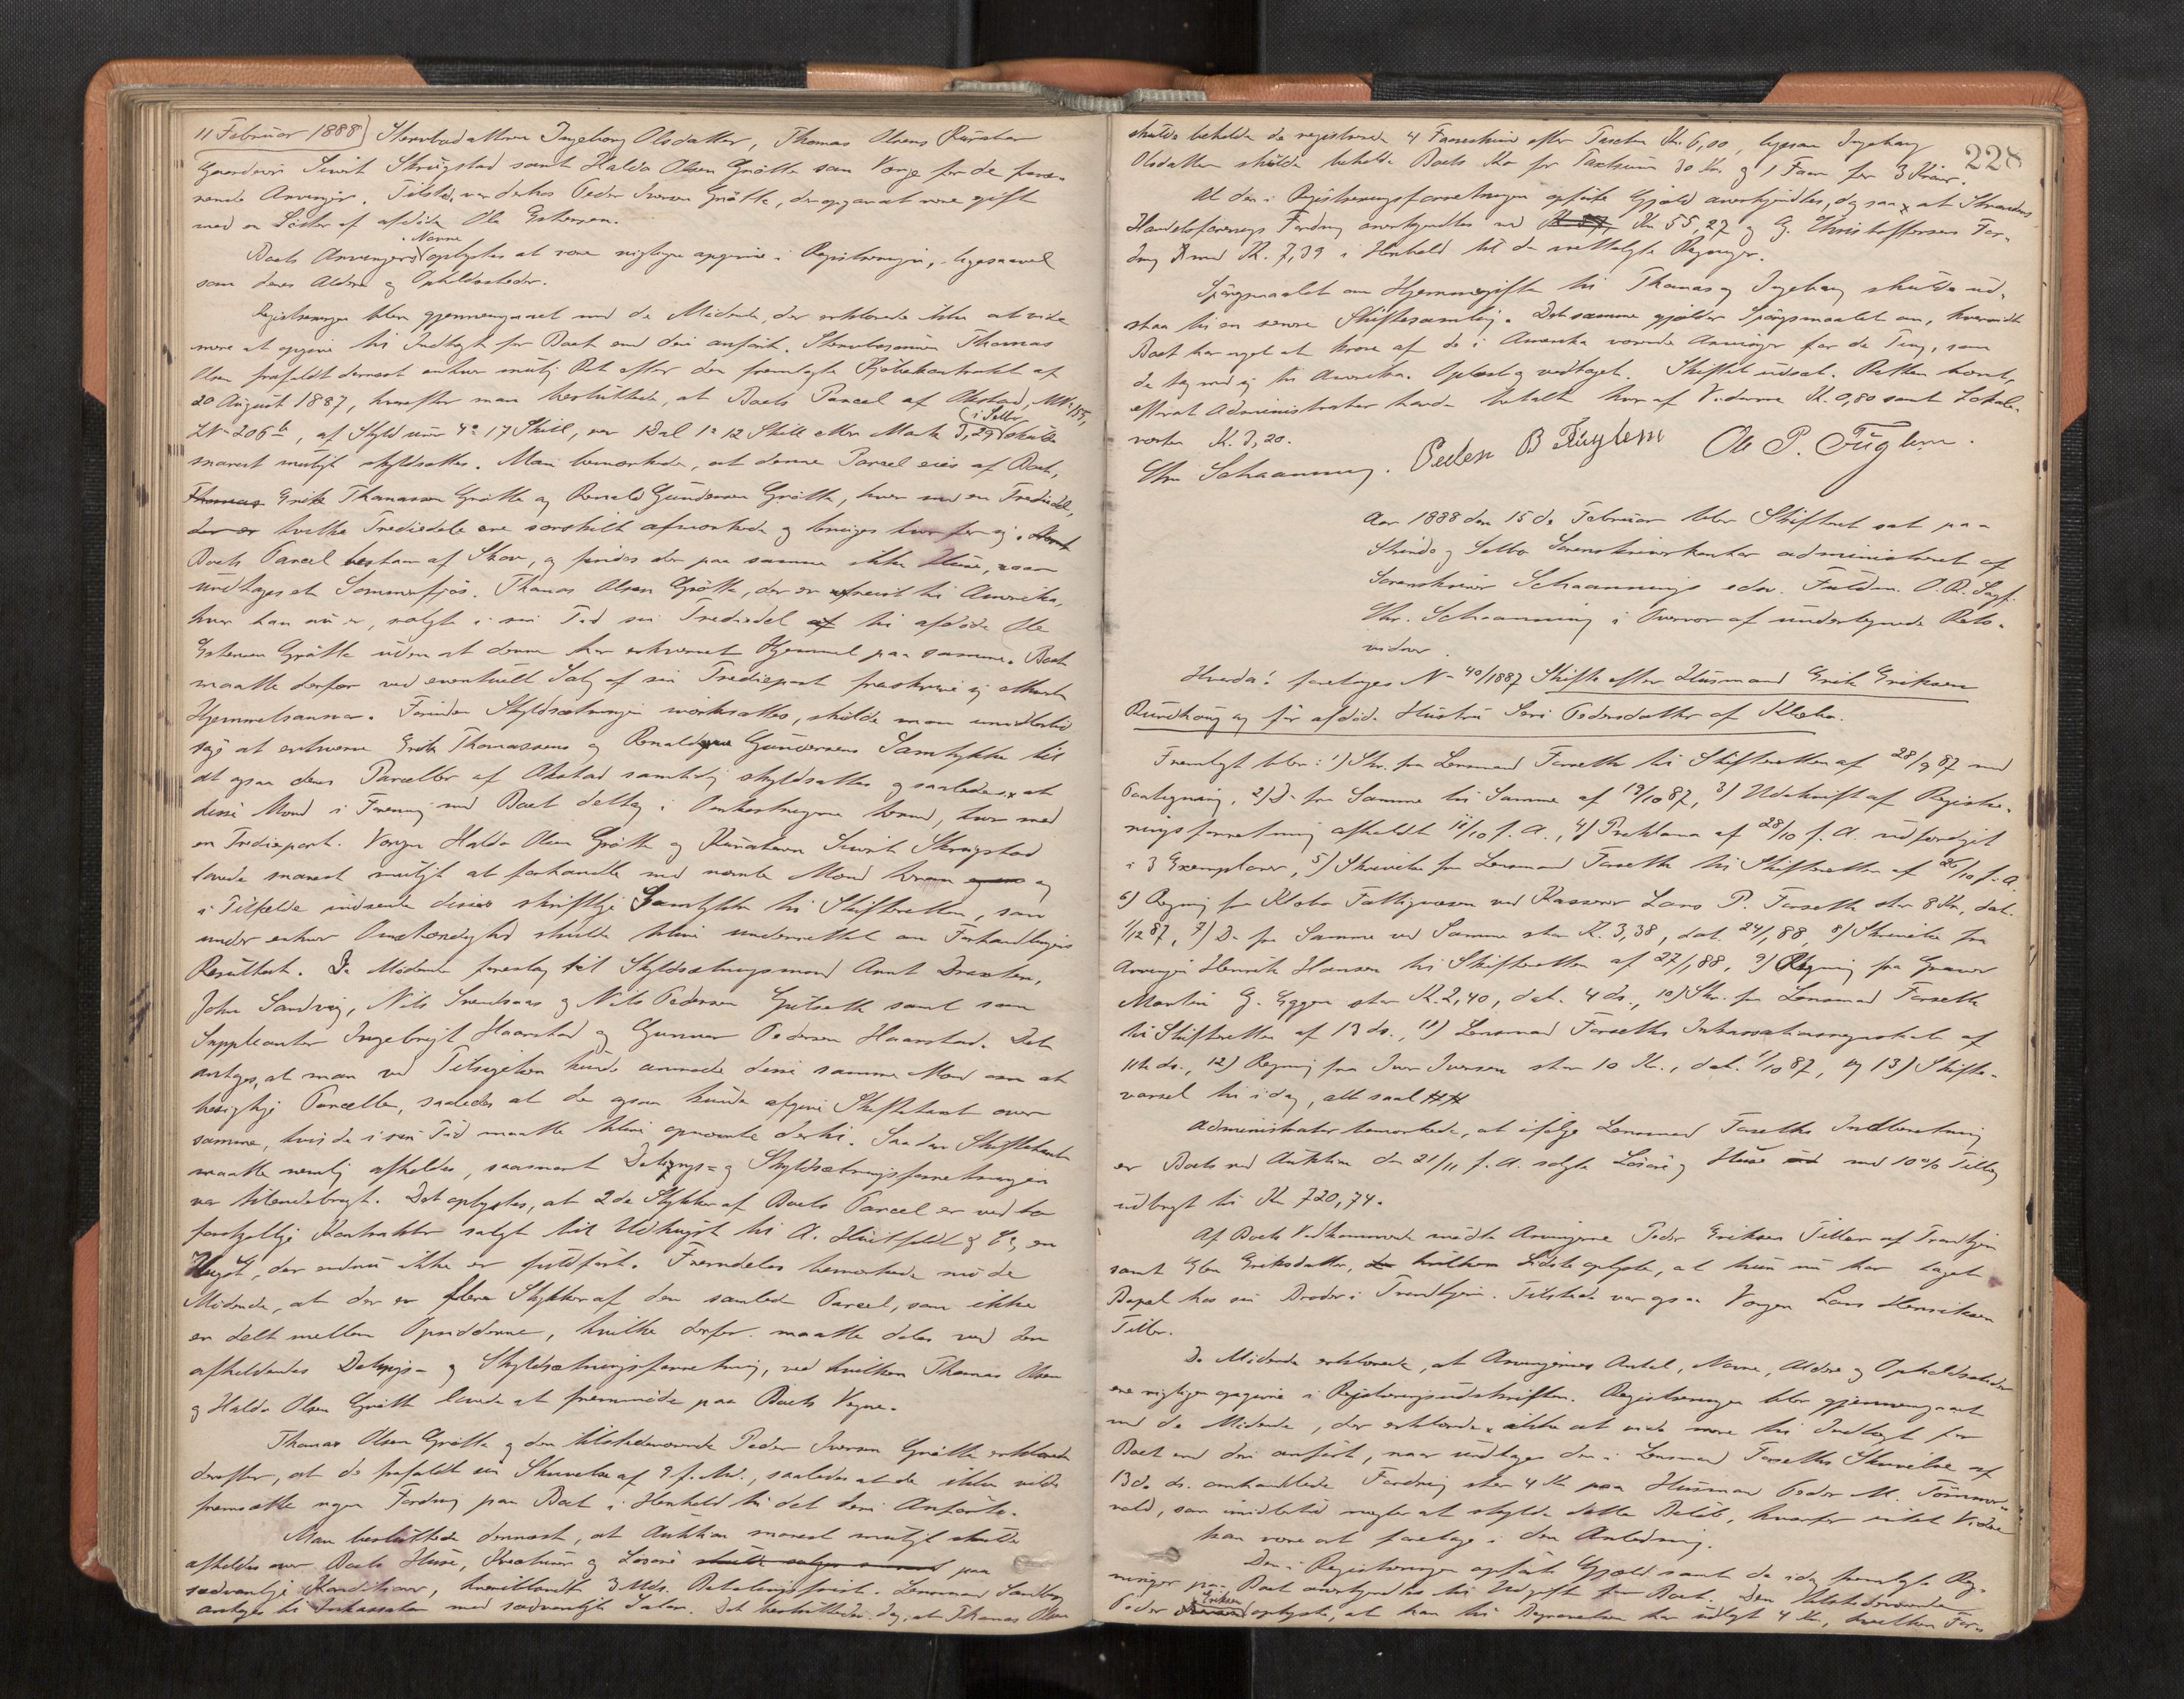 11 Februar 1888) Stervbodatteren Ingeborg Olsdatter, Thomas Olsens Kurator
Gaardmand Sivert Skrugstad samt Haldo Olsen Grøtte som Verge for de fravæ-
rende Arvinger. Tilstede var derhos Peder Iversen Grøtte, der opgav at være gift
med en Søster af afdøde Ole Estensen.
Boets Arvingers Navne oplystes at være rigtigen opgivne i Registreringen, ligesaavel
som deres Aldere og Opholdssteder.
Registreringen blev gjennemgaaet med de Mødende, der erklærede ikke at vide
mere at opgive til Indtægt for Boet end deri anført. Stervbosønnen Thomas
Olsen frafaldt dernæst enhver mulig Ret efter den fremlagte Kjøbekontrakt af
20 August 1887, hvorefter man besluttede, at Boets Parcel af Okstad, MNo 155,
LNo 206b, af Skyld 17 Skill, 1 Dal 1 12 Skill eller Mark 3,29 i Selbu skulde
snarest muligt skyldsættes. Man bemærkede, at denne Parcel eies af Boet,
Thomas Erik Thomassen Grøtte og Renald Gundersen Grøtte, hver med en Trediedel,
der er hvilke Trediedele ere særskilt afmærkede og bruges hver for sig.
Boets Parcel bestaar af Skov, og findes der paa samme ikke Huse, naar
undtages et Sommerfjøs. Thomas Olsen Grøtte, der er afreist til Amerika,
hvor han nu er, solgte i sin Tid sin Trediedel af til afdøde Ole
Estensen Grøtte uden at denne har erhvervet Hjemmel paa samme. Boet
maatte derfor ved eventuelt Salg af sin Trediepart fraskrive sig ethvert
Hjemmelsansvar. Forinden Skyldsætningen iværksættes, skulde man imidlertid
søge at erhverve Erik Thomassens og Renald Gundersens Samtykke til
at ogsaa deres Parceller af Okstad samtidig skyldsættes og saaledes at
disse Mænd i Forening med Boet deltog i Omkostningerne herved, hver med
en Trediepart. Vergen Haldo Olsen Grøtte og Kuratoren Sivert Skrugstad
lovede snarest muligt at forhandle med nævnte Mænd herom og
i Tilfælde indsende disses skriftlige Samtykke til Skifteretten, som
under enhver Omstændighed skulde blive underrettet om Forhandlingens
Resultat. De Mødende foreslog til Skyldsætningsmænd Arnt Draxten,
John Sandvig, Nils Svendsaas og Nils Pedersen samt som
Suppleanter Ingebrigt Haarstad og Gunnar Pedersen Haarstad. Det
antoges, at man ved Tilsigelsen kunde anmode disse samme Mænd om at
besigtige Parcellen, saaledes at de ogsaa kunde afgive Skiftetaxt over
samme, hvis de i sin Tid maatte blive opnævnte dertil. Saadan Skiftetaxt
maatte nemlig afholdes, saasnart Delings- og Skyldsætningsforretningen
var tilendebragt. Det oplystes, at 2de Stykker af Boets Parcel er ved to
forskjellige Kontrakter solgt til Udhugst til A. Huitfeldt & Co, en
Hugst, der endnu ikke er fuldført. Fremdeles bemærkede nu de
Mødende, at der er flere Stykker af den samlede Parcel, som ikke
er delt mellem Opsidderne, hvilke derfor maatte deles ved den
afholdendes Delings- og Skyldsætningsforretning, ved hvilken Thomas Olsen
og Haldo Olsen Grøtte lovede at fremmøde paa Boets Vegne.
Thomas Olsen Grøtte og den tilstedeværende Peder Iversen Grøtte erklærede
derefter, at de frafaldt sin Skrivelse af 9 f. Md., saaledes at de ikke vilde
fremsætte nogen Fordring paa Boet i Henhold til det deri Anførte.
Man besluttede dernæst, at Auktion snarest muligt skulde
afholdes over Boets Huse, Kreaturer og Løsøre skulde sælges snarest paa
sædvanlige Konditioner, hvoriblandt 3 Mdrs. Betalingsfrist. Lensmand Sandborg
antoges til Inkassator med sædvanligt Salær. Det besluttedes dog, at Thomas Olsen
228
skulde beholde de registrerede 4 Faareskind efter Taxten Kr. 6,00, ligesom Ingeborg
Olsdatter skulde beholde Boets Ko for Taxtsum 30 Kr. og 1 Faar for 3 Kroner.
Al den i Registreringsforretningen opførte Gjæld anerkjendtes, dog saa at Strandens
Handelsforenings Fordring anerkjendtes med Kr. 55,27 og G. Christoffersens For-
dring med Kr. 7,39 i Henhold til de mottatte Regninger.
Spørgsmaalet om Hjemmegifte til Thomas og Ingeborg skulde ud-
staa til en senere Skiftesamling. Det samme gjælder Spørgsmaalet om, hvorvidt
Boet har noget at kræve af de i Amerika værende Arvinger for de Ting, som
de tog med sig til Amerika. Oplæst og vedtaget. Skiftet udsat. Retten hævet,
efterat Administrator havde betalt hver af Vidnerne Kr. 0,80 samt Lokale-
Kr. 3,20.
Chr Schaanning. Peder B Fuglem Ole P. Fuglem.
Aar 1888 den 15de Februar blev Skifteret sat paa
Strinda og Selbo Sorenskriverkontor administreret af
Sorenskriver Schaannings edsv. Fuldm. O.R. Sagf.
Chr. Schaanning i Overvær af undertegnede Rets-
vidner.
Hvorda: foretoges No 40/1887 Skifte efter Husmand Erik Eriksen
Rundhaug og før afdøde Hustru Seri Pedersdatter af Klæbu.
Fremlagt blev: 1) Skr. fra Lensmand Forseth til Skifteretten af 28/9 87 med
Paategning, 2) Do fra Samme til Samme af 19/10 87, 3) Udskrift af Registre-
ringsforretning afholdt 11/10 f. A., 4) Proklama af 28/10 f. A. udfærdiget
i 3 Exemplarer, 5) Skrivelse fra Lensmand Forseth til Skifteretten af 26/10 f. A.
6) Regning fra Klæbo Fattigvæsen ved Kasserer Lars P. Forseth stor 8 Kr., dat.
1/12 87, 7) Do fra Samme ved Samme stor Kr. 3,38, dat. 24/1 88, 8) Skrivelse fra
Arvingen Henrik Hansen til Skifteretten af 27/1 88, 9) Regning fra Graver
Martin G. Eggen stor Kr. 2,40, dat. 4 ds., 10) Skr. fra Lensmand Forseth
til Skifteretten af 13 ds., 11) Lensmand Forseths Inkassationsregnskab af
11te ds., 12) Regning fra Iver Iversen stor 10 Kr., dat. 1/10 87, og 13) Skifte-
varsel til idag, alt saal.
Administrator bemærkede, at ifølge Lensmand Forseths Indberetning
er Boets ved Auktion den 21/11 f. A. solgte Løsøre og Huse med 10% Tillæg
udbragt til Kr. 720,74.
Af Boets Vedkommende mødte Arvingerne Peder Eriksen Tiller af Trondhjem
samt Eriksdatter, hvilken Sidste oplyste, at hun nu har taget
Bopæl hos sin Broder i Trondhjem. Tilstede var ogsaa Vergen Lars Henriksen
Tiller.
De Mødende erklærede, at Arvingernes Antal, Navne, Aldere og Opholdssteder
ere rigtigen opgivne i Registreringsudskriften. Registreringen blev gjennemgaaet
med de Mødende, der erklærede ikke at vide mere til Indtægt for
Boet end deri anført, naar undtages den i Lensmand Forseths Skrivelse af
13de ds. omhandlede Fordring stor 4 Kr. paa Husmand Peder M. Tømmer-
vold, som imidlertid negter at skylde dette Beløb, hvorfor intet Videre
kan være at foretage i den Anledning.
Den i Registreringen opførte Gjæld samt de idag fremlagte Reg-
ninger paa Boet anerkjendtes til Udgift for Boet. Den tilstedeværende
Peder Eriksen oplyste, at han til Begravelsen har udlagt 4 Kr., hvilken For-